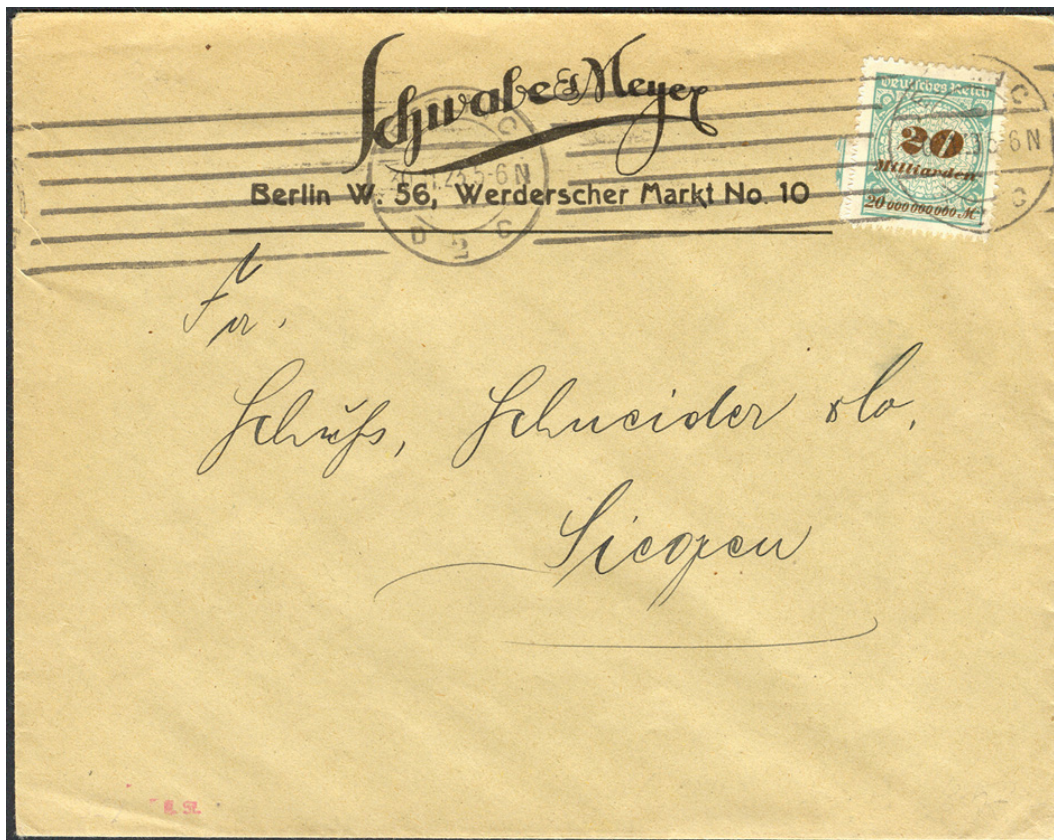 Schwabe & Meyer
Berlin W. 56, Werderscher Markt No. 10
Deutsches Reich
20
Milliarden
20 000 000 000 M
5-6 N
C
2
Fa.
Schuhs, Schneider & Co,
Siegen